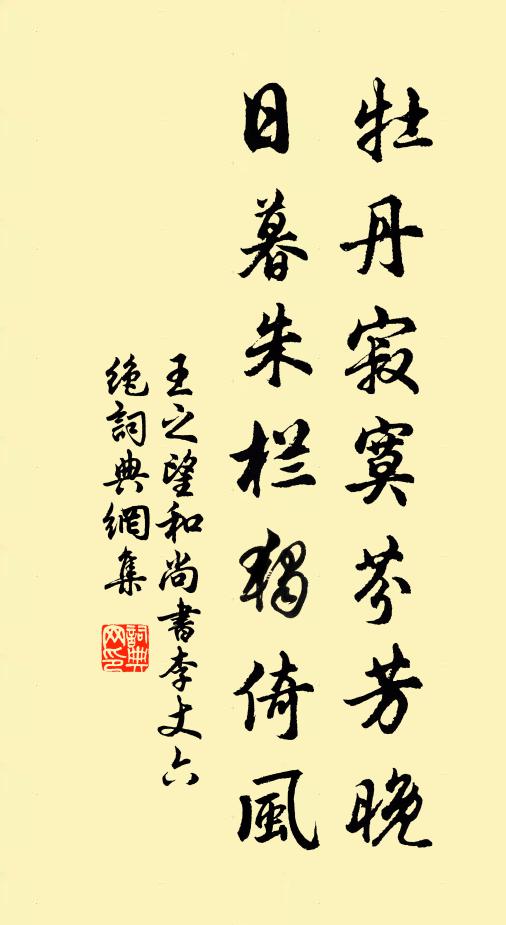 牡丹寂寞芬芳晚
日暮朱栏獨倚風
王之望和尚書李丈六
絶詞典網集
詞典網印